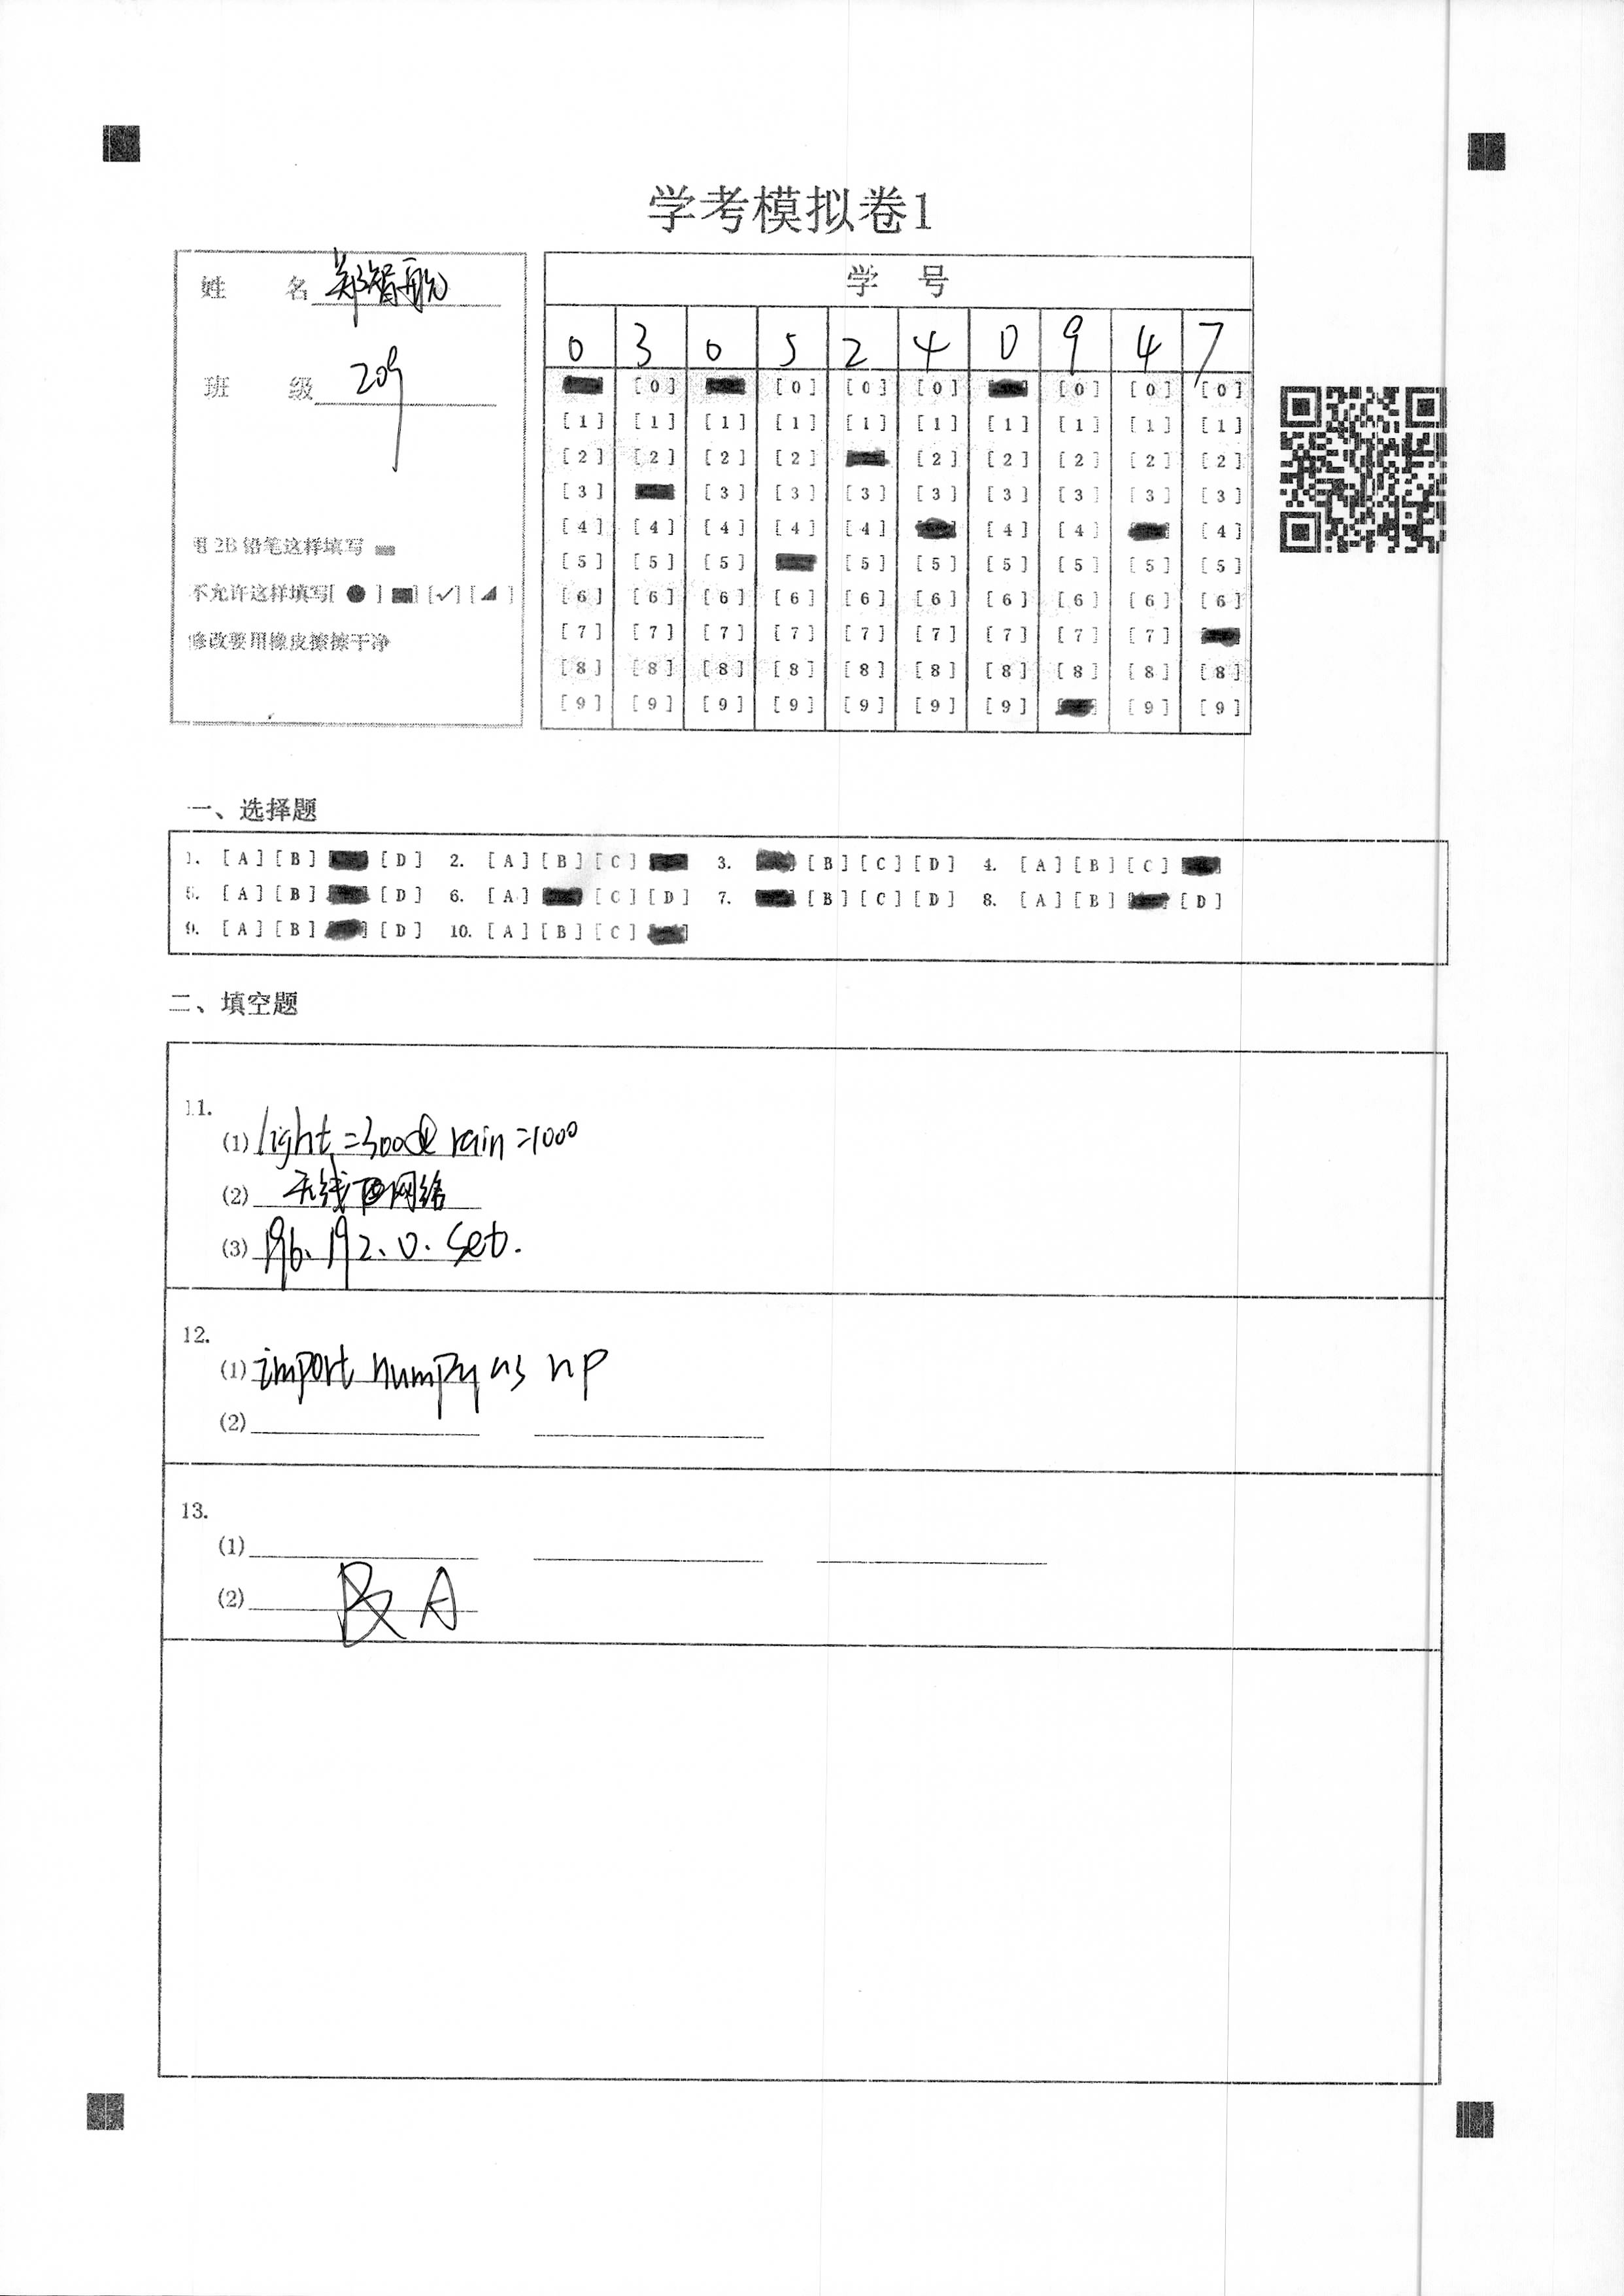 学考模拟卷1
姓 名 郑智航
班 级 209
用 2B 铅笔这样填写
不允许这样填写[ ● ] [■] [✓] [◢ ]
修改要用橡皮擦擦干净
学 号
0 3 0 5 2 4 0 9 4 7
[0] [0] [0] [0] [0] [0] [0]
[1] [1] [1] [1] [1] [1] [1] [1] [1] [1]
[2] [2] [2] [2] [2] [2] [2] [2] [2]
[3] [3] [3] [3] [3] [3] [3] [3] [3]
[4] [4] [4] [4] [4] [4] [4] [4]
[5] [5] [5] [5] [5] [5] [5] [5] [5]
[6] [6] [6] [6] [6] [6] [6] [6] [6] [6]
[7] [7] [7] [7] [7] [7] [7] [7] [7]
[8] [8] [8] [8] [8] [8] [8] [8] [8] [8]
[9] [9] [9] [9] [9] [9] [9] [9] [9]
一、选择题
1. [A] [B] [D] 2. [A] [B] [C] 3. [B] [C] [D] 4. [A] [B] [C]
5. [A] [B] [D] 6. [A] [C] [D] 7. [B] [C] [D] 8. [A] [B] [D]
9. [A] [B] [D] 10. [A] [B] [C]
二、填空题
11.
(1) light=300 rain=1000
(2) 无线 网络
(3) 196、192、0. set.
12.
(1) import numpy as np
(2)
13.
(1)
(2) A